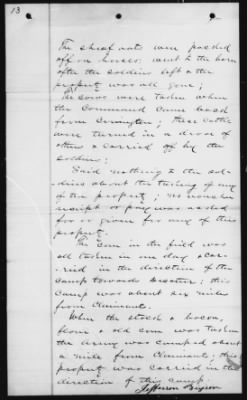 13
The sheaf oats were packed
off on horses; went to the barn
after the soldiers left & the
property was all gone;
The cows were taken when
the Command came back
from ; these cattle
were turned in a drove of
others & carried off by the
soldiers;
Said nothing to the sol-
diers about the taking of any
of the property; no voucher
receipt or pay was asked
for or given for any of this
property.
The corn in the field was
all taken in one day & car-
ried in the direction of the
camp towards Decatur; this
camp was about six miles
from
When the stock & bacon,
flour & old corn was taken
the army was camped about
a mile from ; this
property was carried in the
direction of this camp.
Jefferson